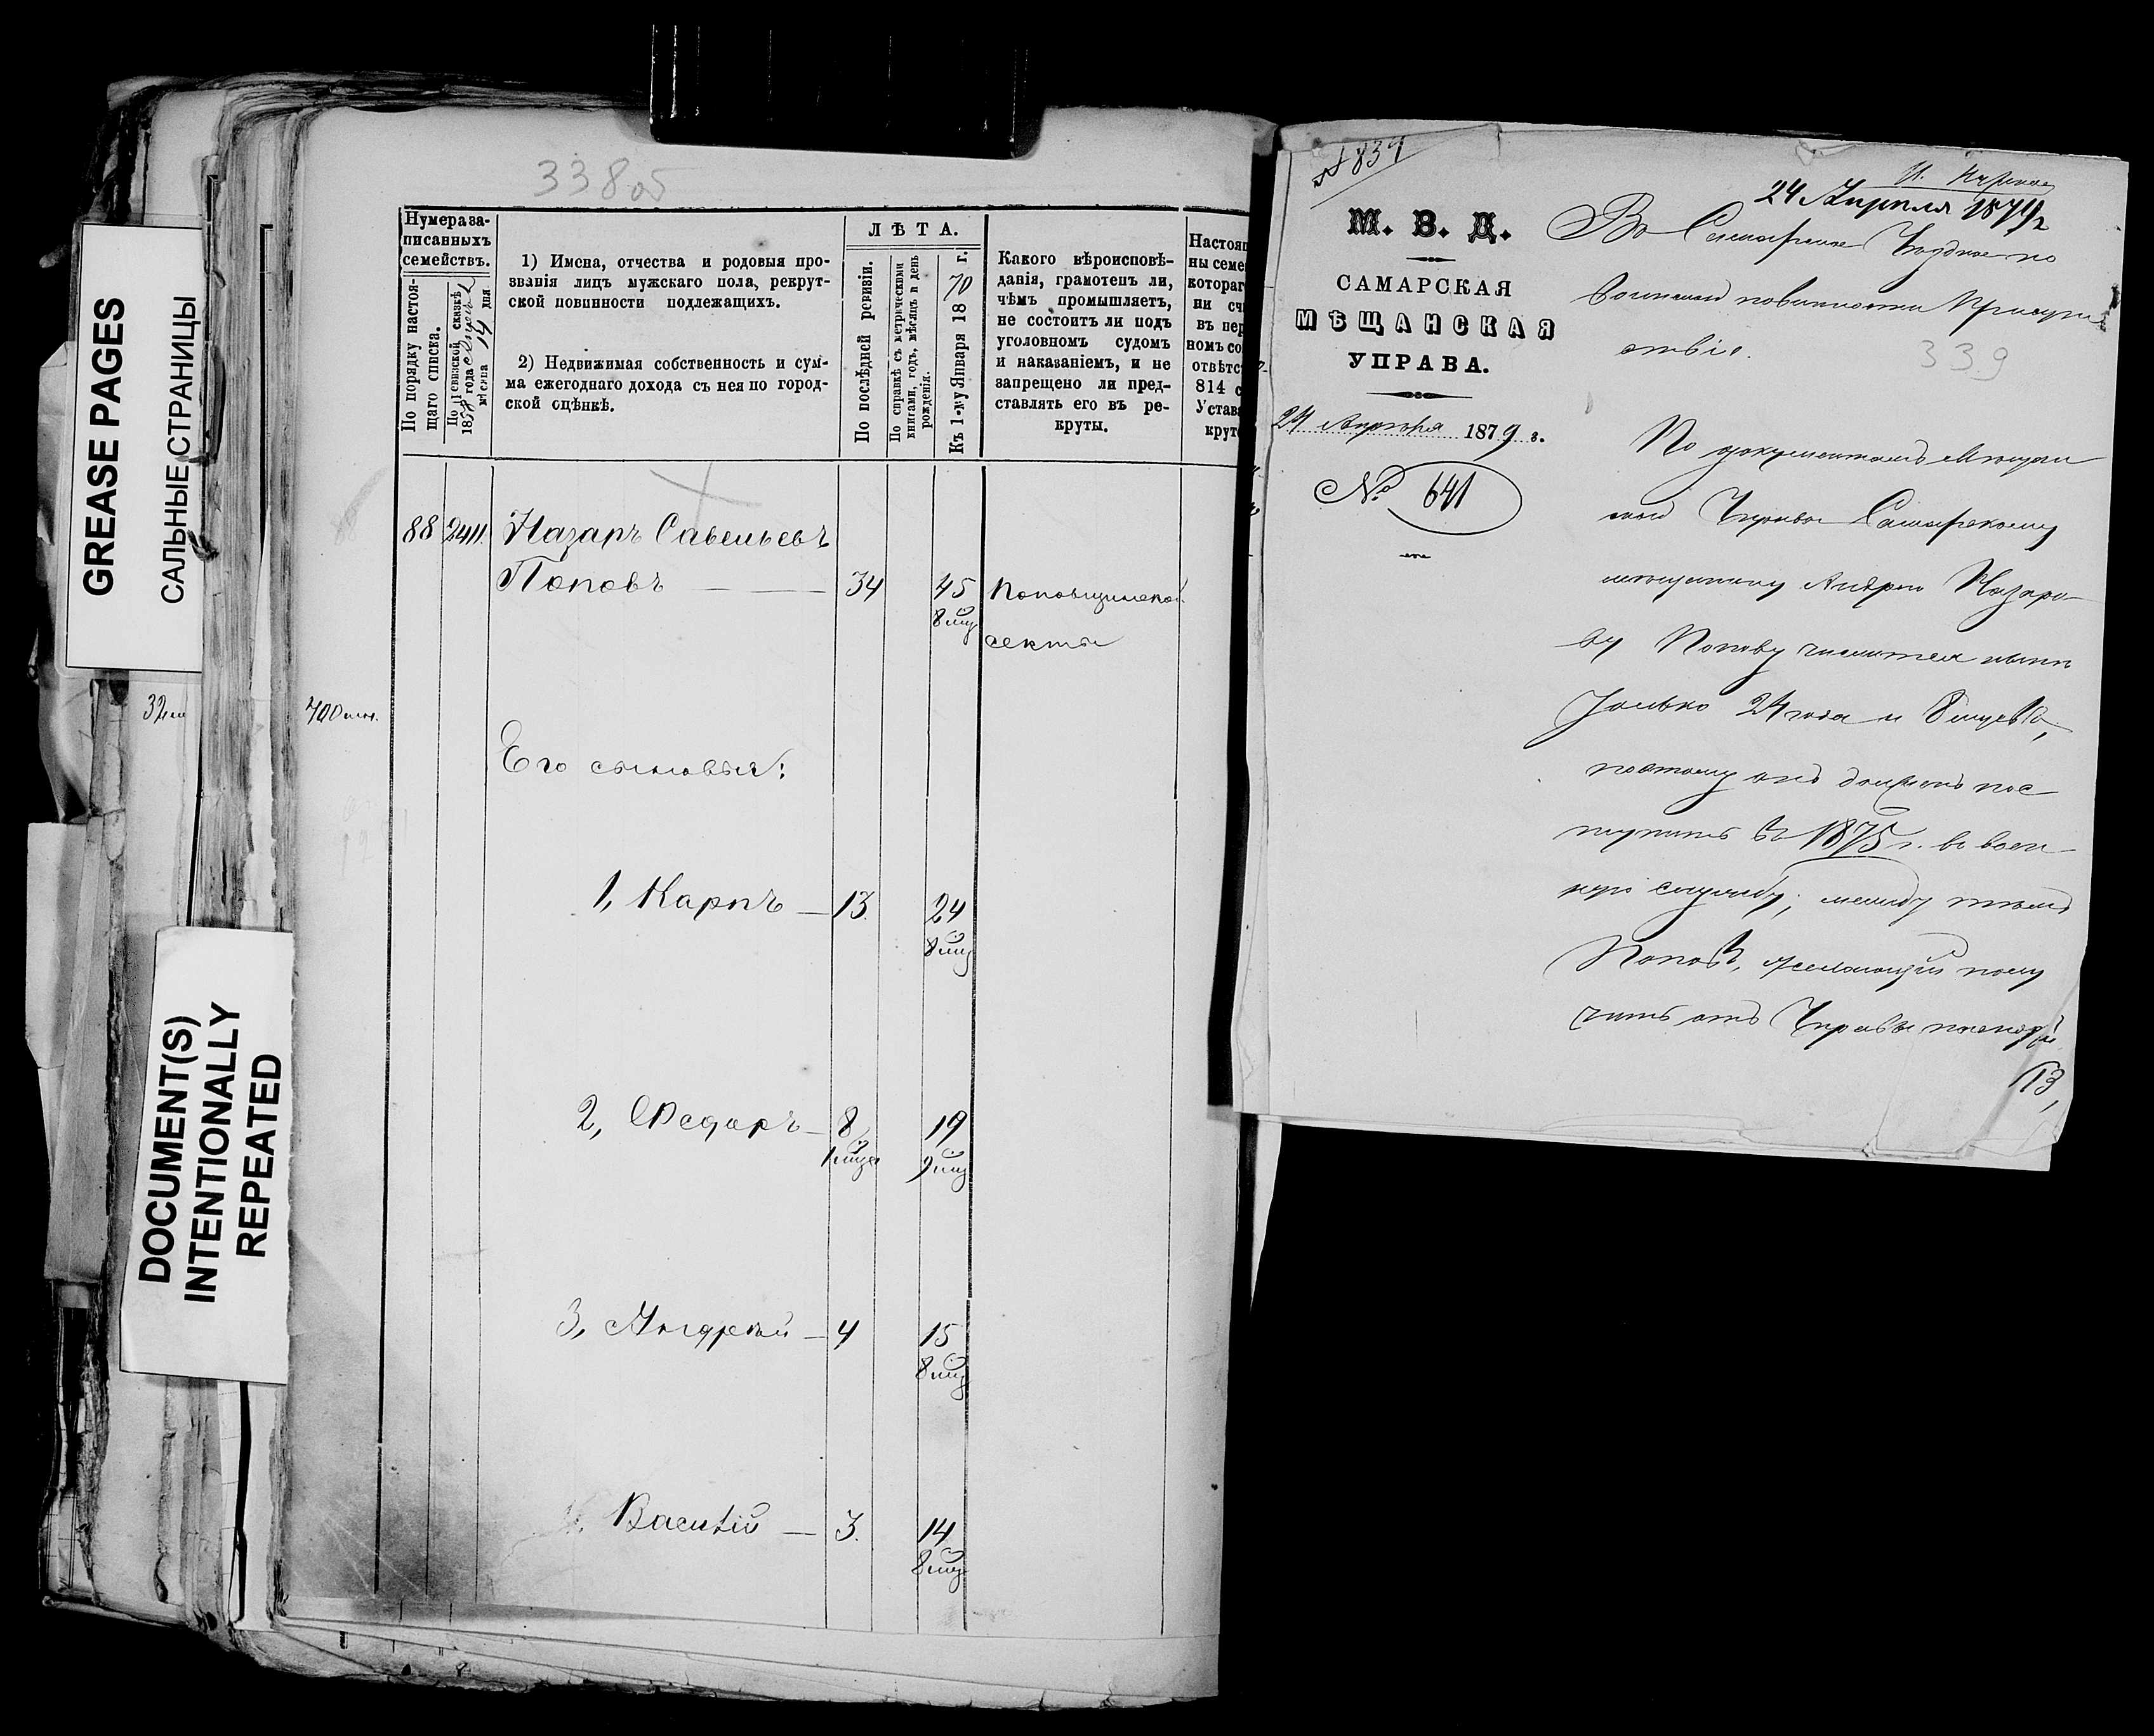 GREASE PAGES
САЛЬНЫЕ СТРАНИЦЫ
DOCUMENT(S)
INTENTIONALLY
REPEATED
338 об
Нумера за-
писанныхъ
семействъ.
По порядку настоя-
щаго списка.
По ревизской сказкѣ
1858 года
мѣсяца 14 дня
1) Имена, отчества и родовыя про-
званія лицъ мужскаго пола, рекрут-
ской повинности подлежащихъ.
2) Недвижимая собственность и сум-
ма ежегоднаго дохода съ нея по город-
ской оцѣнкѣ.
ЛѢТА.
По послѣдней ревизіи.
По справкѣ съ метрическими
книгами, годъ, мѣсяцъ и день
рожденія.
Къ 1-му Января 1870 г.
Какого вѣроисповѣ-
данія, грамотенъ ли,
чѣмъ промышляетъ,
не состоитъ ли подъ
уголовномъ судомъ
и наказаніемъ, и не
запрещено ли пред-
ставлять его въ ре-
круты.
Настоя
ны семе
котораг
ни сч
въ пер
номъ со
отвѣтс
814 с
Устава
крут
88 2411. Назаръ Савельевъ
Поповъ — — 34 45 Поповщинской
8 мц секты
32
700
Его сыновья:
1, Карпъ — 13. 24
8 мц
2, Федоръ — 8 19
1 мца 9 мц
3, Андрей — 4 15
8 мц
4. Василій — 3. 14
8 мц
№ 839
24 Апрѣля 1879
М. В. Д.
САМАРСКАЯ
МѢЩАНСКАЯ
УПРАВА.
24 Апрѣля 1879 г.
№ 641
Въ Самарское Уѣздное по
воинской повинности Присут
ствіе.
339
По документамъ Мѣщан
ской Управы Самарскому
мѣщанину Андрею Назаро-
ву Попову числится нынѣ
только 24 года и 8 мцевъ,
поэтому онъ долженъ пос
тупить въ 1875 г. въ воен-
ную службу; между тѣмъ
Поповъ, желающій полу
чить отъ Управы паспортъ